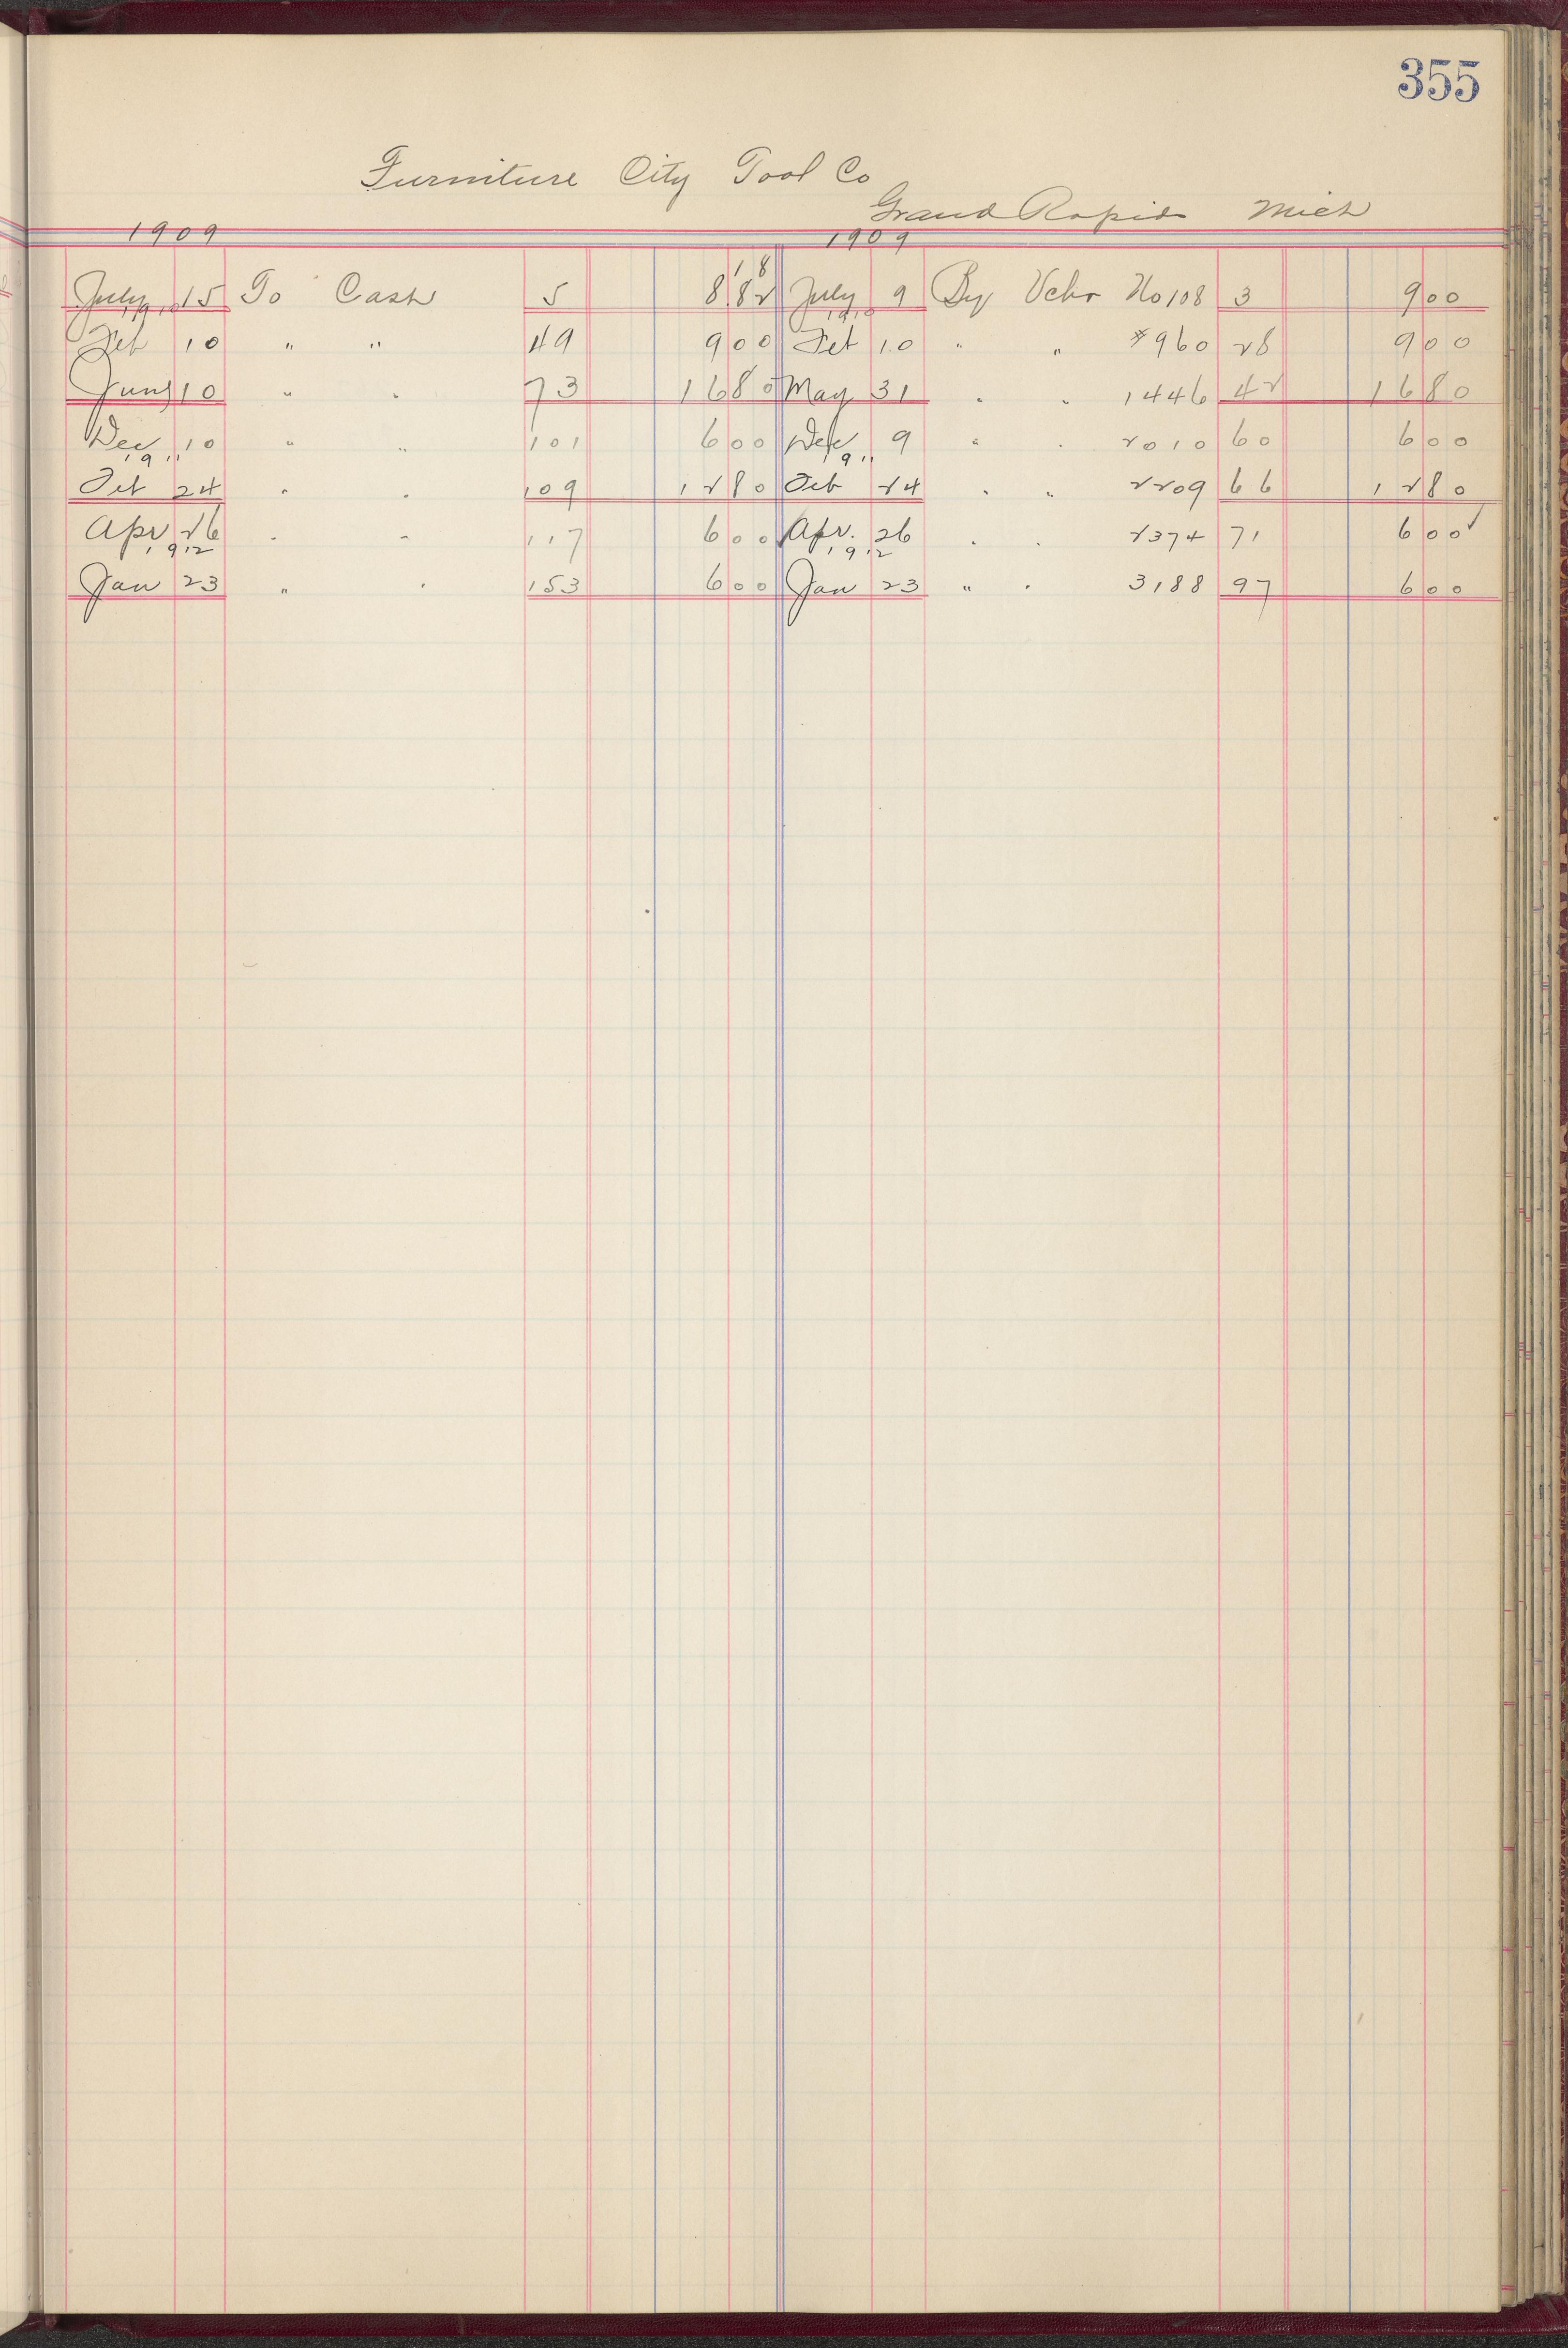 355
Furniture City Tool Co
Grand Rapids Mich
1909 1909
18
July 15 To Cash 5 8 82 July 9 By Vchr No 108 3 9 00
1910 1910
Feb 10 " " 49 9 00 Feb 10 " " #960 28 9 00
June 10 " " 73 16 80 May 31 " " 1446 42 16 80
Dec 10 " " 101 6 00 Dec 9 " " 2010 60 6 00
1911 1911
Feb 24 " " 109 12 80 Feb 24 " " 2209 66 12 80
Apr 26 " " 117 6 00 Apr. 26 " " 2374 71 6 00 ✓
1912 1912
Jan 23 " " 153 6 00 Jan 23 " " 3188 97 6 00